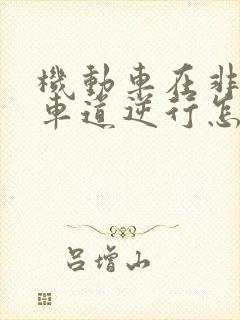 機動車在非
車道逆行怎
吕增山